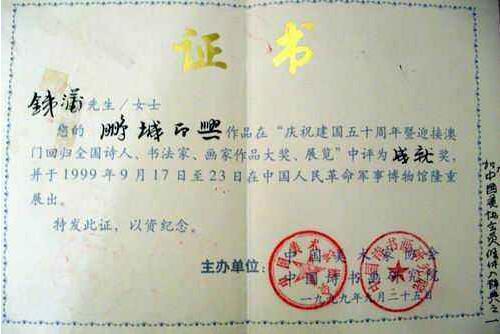 证书
先生/女士
您的 鹏城 興 作品在“庆祝建国五十周年暨迎接澳
门回归全国诗人、书法家、画家作品大奖、展览”中评为成就奖,
并于1999年9月17日至23日在中国人民革命军事博物馆隆重
展出。
特发此证,以资纪念。
主办单位:
中国美术家协会
中国诗书画研究院
一九九九年九月二十五日